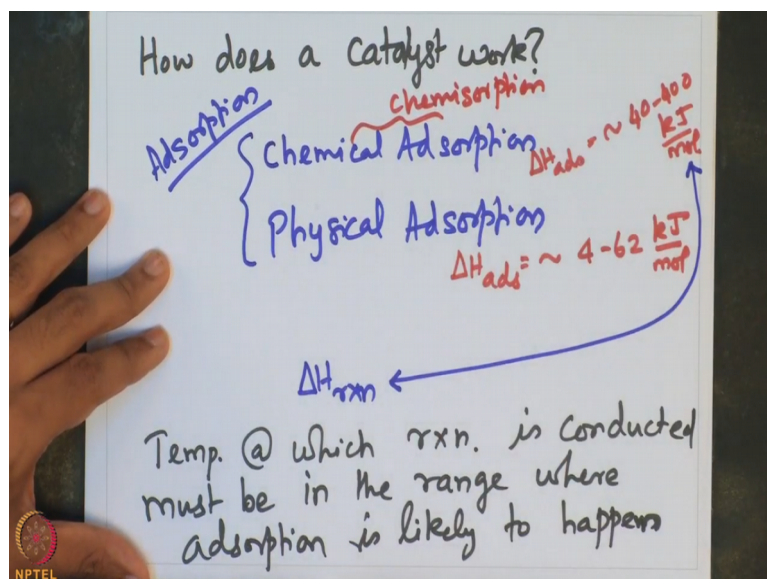 How does a Catalyst work?
Adsorption
Chemisorption
Chemical Adsorption
ΔHads = ~ 40-400 kJ/mol
Physical Adsorption
ΔHads = ~ 4-62 kJ/mol
ΔHrxn
Temp. @ which rxn. is conducted
must be in the range where
adsorption is likely to happen
NPTEL